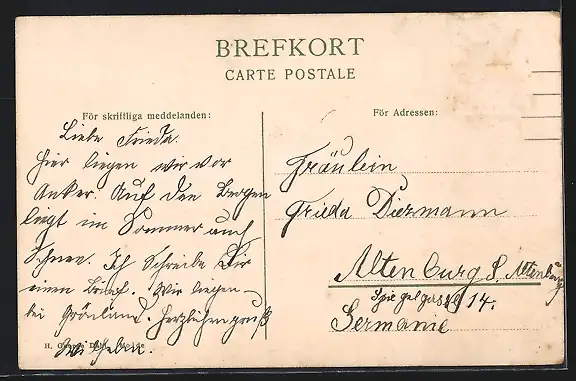 BREFKORT
CARTE POSTALE
För skriftliga meddelanden:
För Adressen:
Liebe Frieda.
Hier liegen wir vor
Anker. Auf den Bergen
liegt im Sommer auch
Schnee. Ich schreibe Dir
einen Brief. Wir liegen
bei Grönland. Herzlichen gruß
Fräulein
Frieda Diezmann
Altenburg S. Altenburg
Spiegelgasse 14.
Germanie